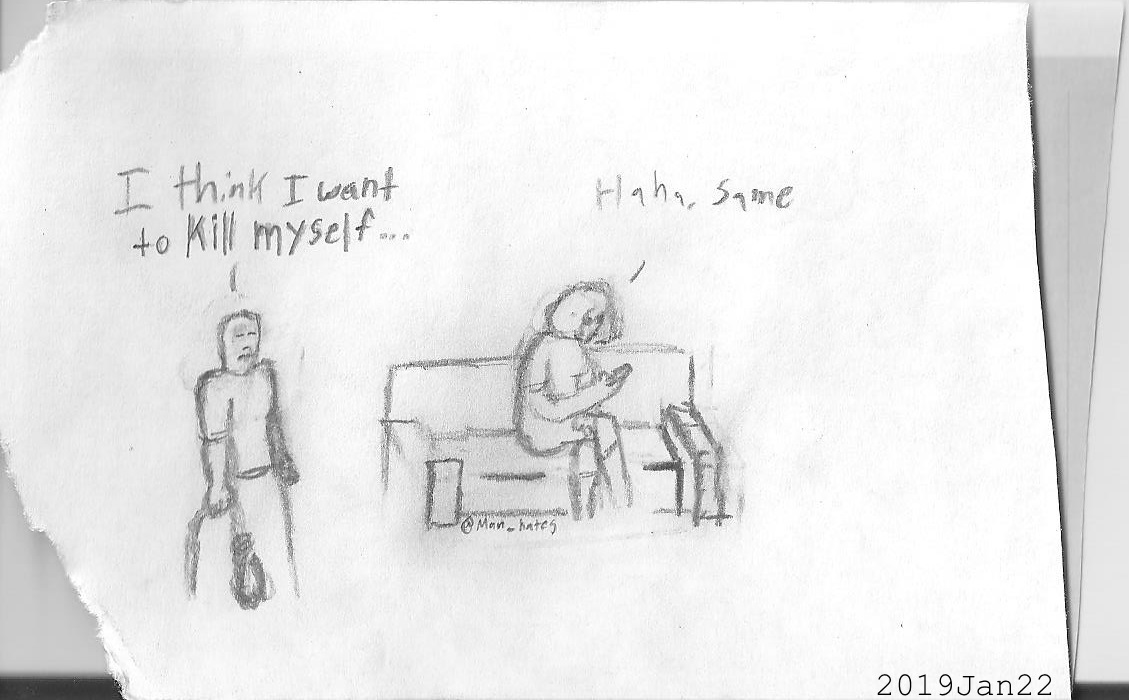 I think I want
to Kill myself...
Haha, Same
@Man_hates
2019Jan22